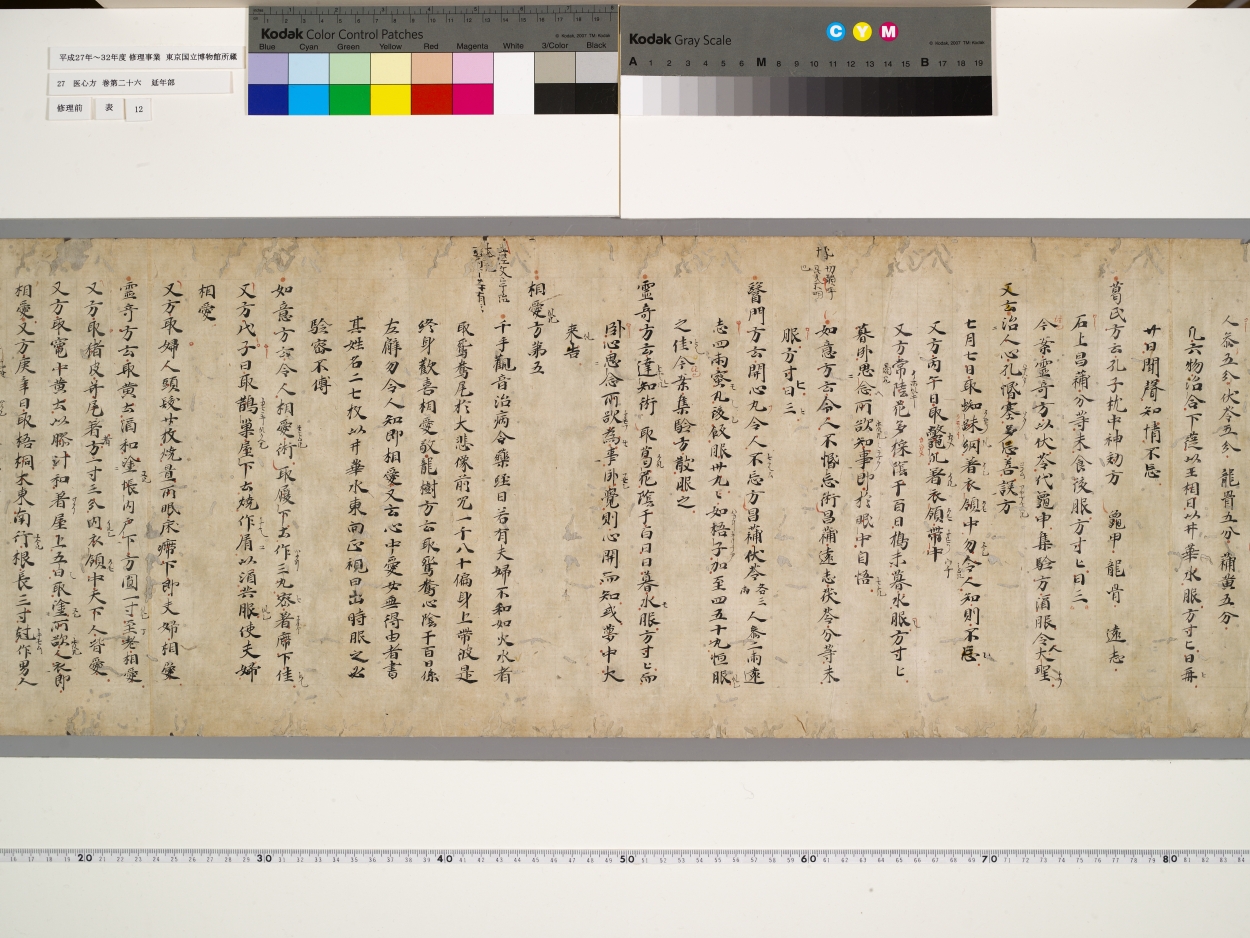 平成27年～32年度 修理事業 東京国立博物館所蔵
27 医心方 巻第二十六 延年部
修理前 表 12
Kodak Color Control Patches
© Kodak, 2007 TM: Kodak
Blue Cyan Green Yellow Red Magenta White 3/Color Black
Kodak Gray Scale
C Y M
© Kodak, 2007 TM: Kodak
A 1 2 3 4 5 6 M 8 9 10 11 12 13 14 15 B 17 18 19
人参五分 伏苓五分 龍骨五分 蒲黄五分
凡六物治合下篩以王相日以井華水服方寸匕日再
廿日開聲知情不忘
葛氏方云孔子枕中神効方 龜甲 龍骨 遠志
石上昌蒲分等末食後服方寸匕日三
今案霊奇方以伏苓代龜甲集驗方酒服令人大聖
又云治人心孔惛塞多忘喜誤方
七月七日取蜘蛛網著衣領中勿令人知則不忘
又方丙午日取鼈爪著衣領帶中
又方常陸花多採陰干百日擣末暮水服方寸匕
暮卧思念所欲知事即於眠中自悟
如意方云令人不惛忘術 昌蒲遠志茯苓分等末
服方寸匕日三
醫門方云開心丸令人不忘方 昌蒲伏苓各三両 人参二両 遠
志四両 蜜丸後飲服廿九日如梧子加至四五十丸恒服
之佳 今案集驗方散服之
霊奇方云達知術 取葛花陰干百日日暮水服方寸匕而
卧心思念所欲為事卧覺則心開而知或夢中火
来告
相愛方第五
千手觀音治病合藥経曰若有夫婦不和如火水者
取鴛鴦尾於大悲像前咒一千八十偏身上帶彼是
終身歡喜相愛敬 龍樹方云取鴛鴦心陰干百日係
左臂勿令人知即相愛 又云心中愛女無得由者書
其姓名二七枚以井華水東向正視日出時服之必
驗密不傳
如意方云令人相愛術 取履下土作三丸密著席下佳
又方戊子日取鵲巣屋下土燒作屑以酒共服使夫婦
相愛
又方取婦人頭髮廿枚燒置所眠床席下即夫婦相愛
霊奇方云取黄土酒和塗帳内戶下方圓一寸至老相愛
又方取猪皮并尾者方一寸三分内衣領中天下人皆愛
又方取竈中黄土以膠汁和著屋上五日取塗所欲人衣即
相愛 又方庚辛日取梧桐木東南行根長三寸尅作男人
20 30 40 50 60 70 80